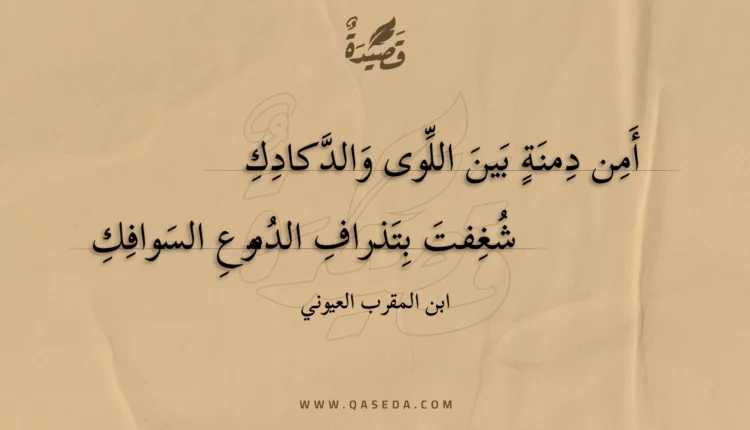 قَصِيدَةٌ
أَمِن دِمنَةٍ بَينَ اللِّوى وَالدَّكادِكِ
شُغِفتَ بِتَذرافِ الدُموعِ السَوافِكِ
ابن المقرب العيوني
WWW.QASEDA.COM